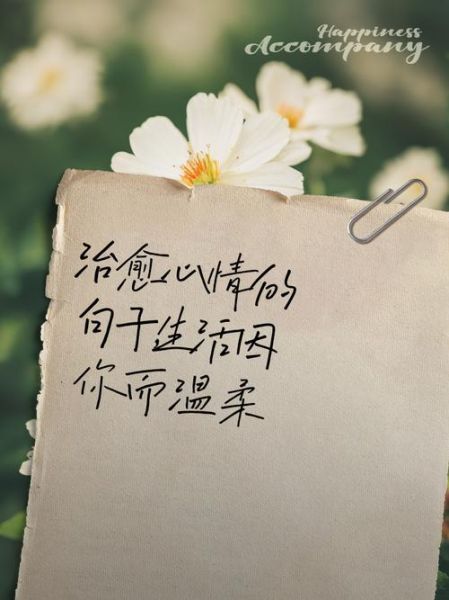 Happiness
Accompany
治愈心情的
句子生活因
你而温柔